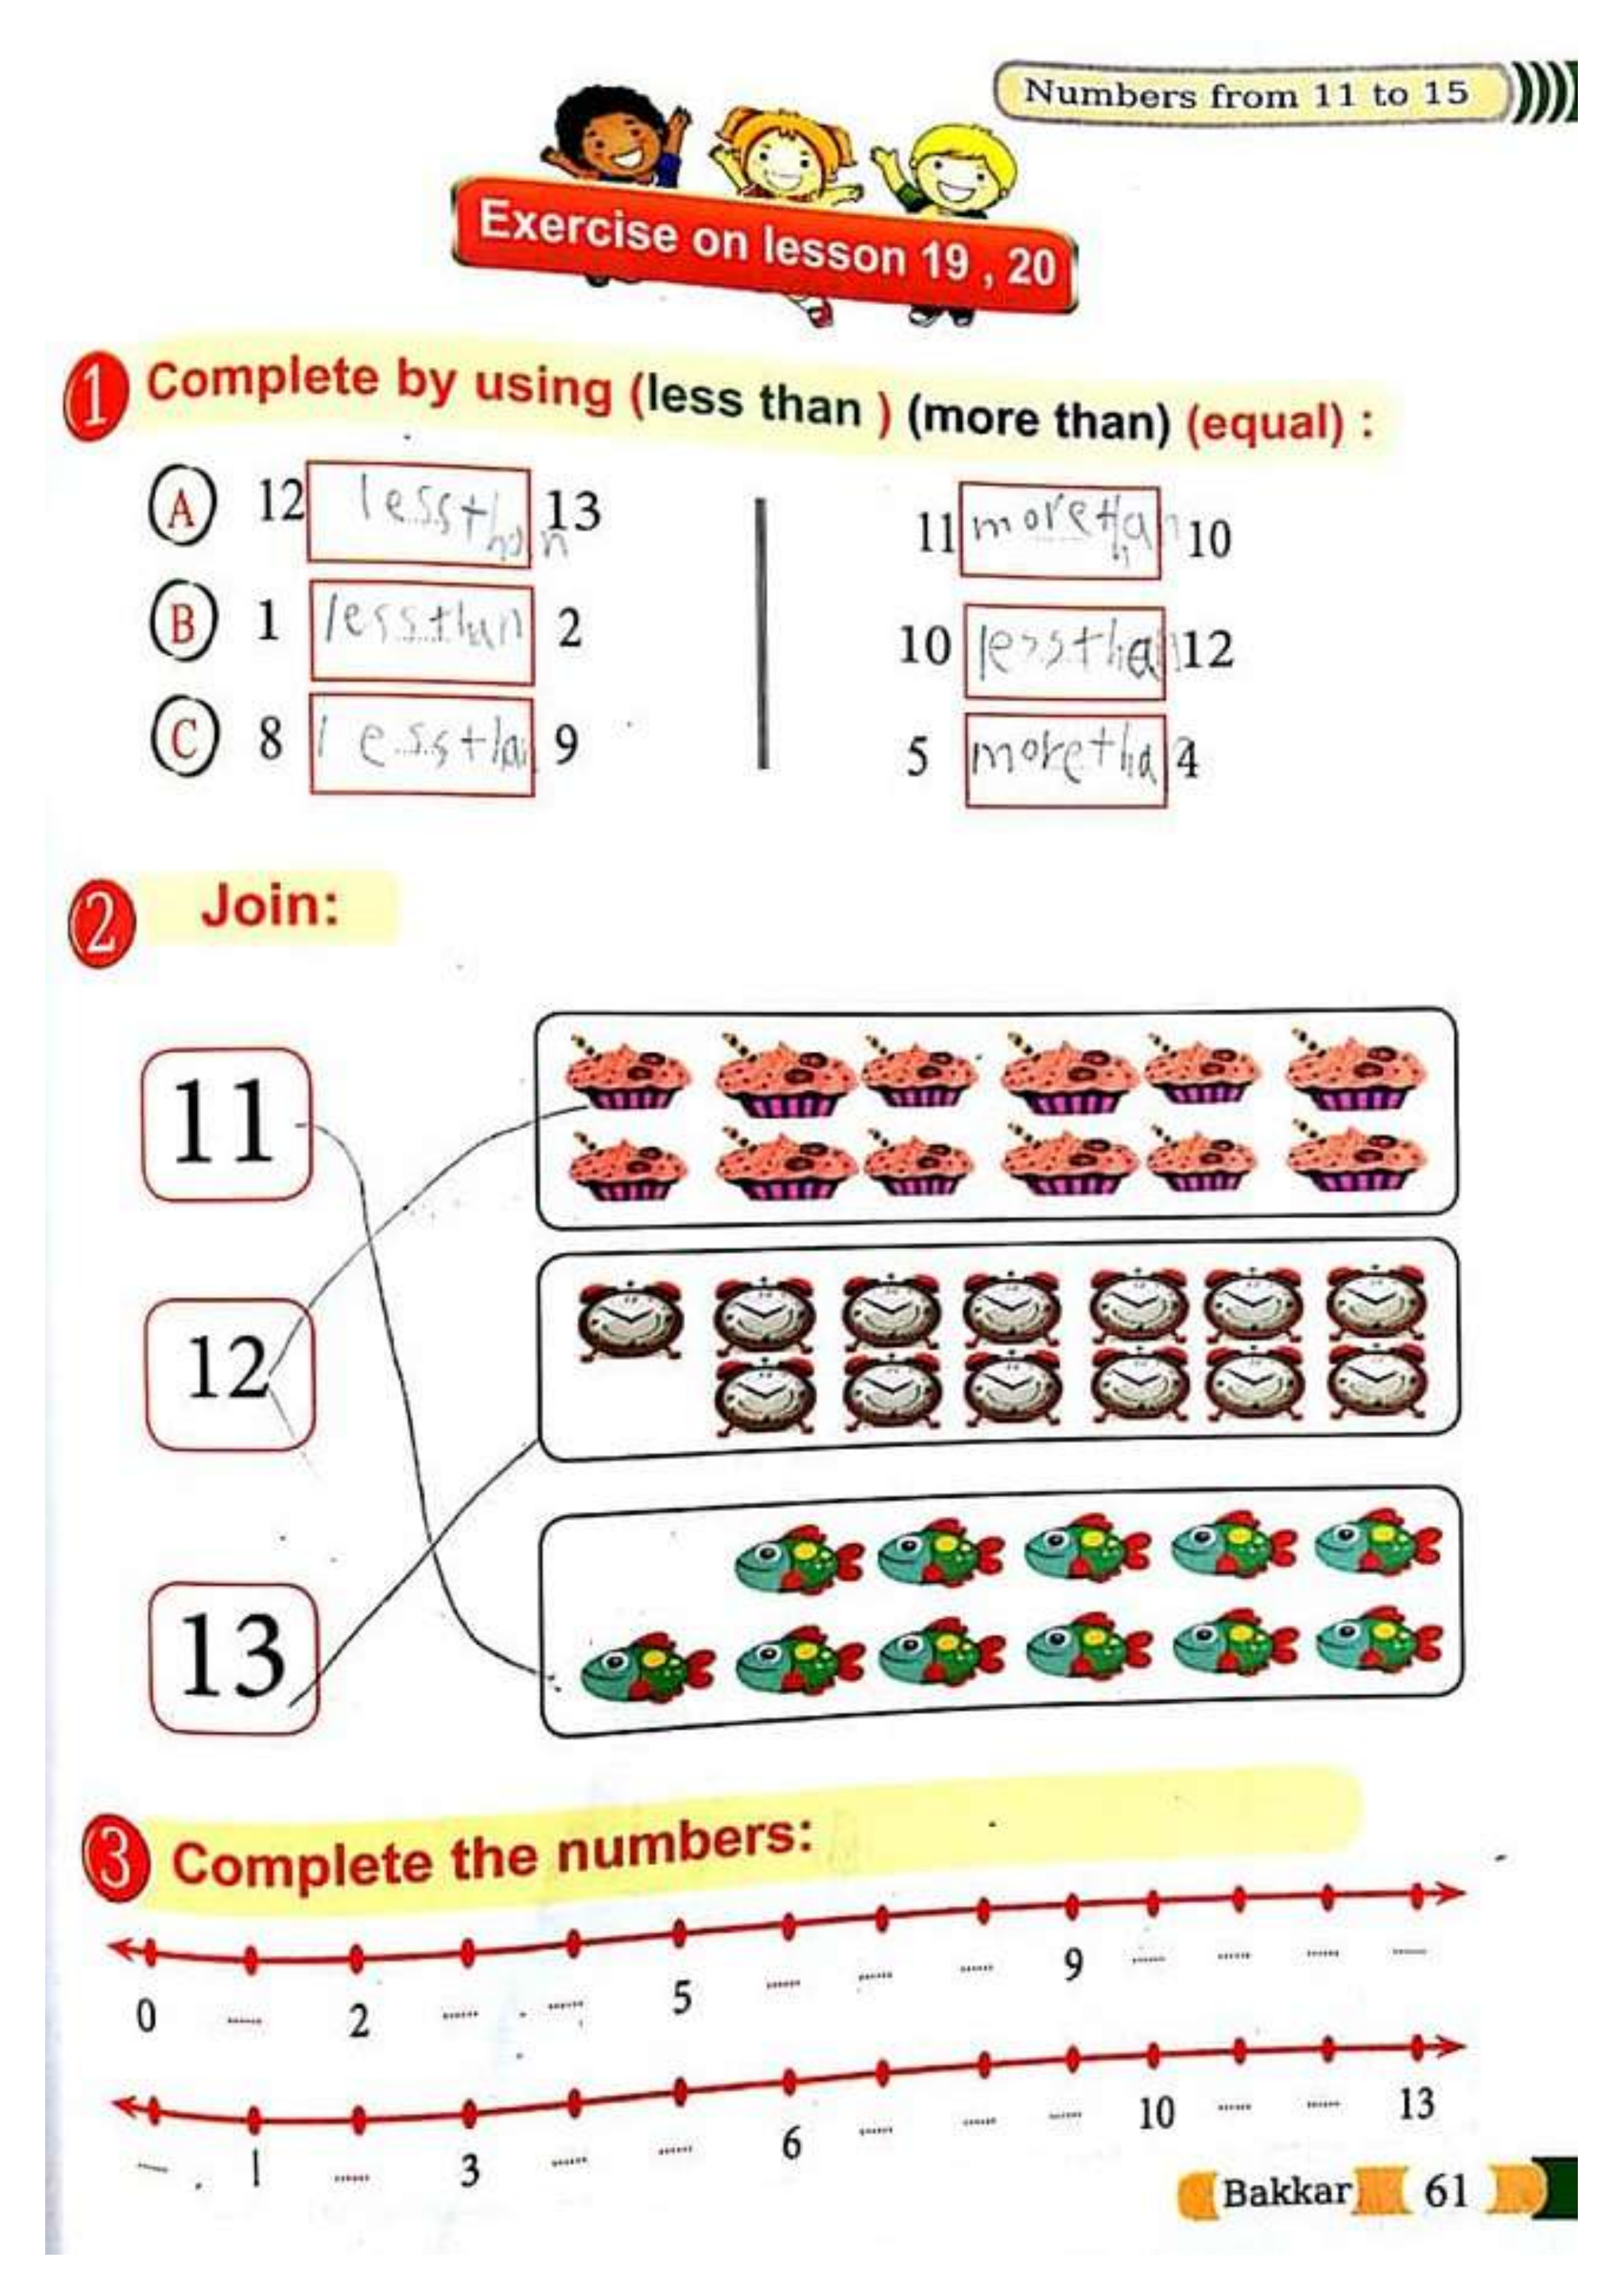 Numbers from 11 to 15
Exercise on lesson 19 , 20
1 Complete by using (less than ) (more than) (equal) :
A 12 less than 13 11 more than 10
B 1 less than 2 10 less than 12
C 8 less tha 9 5 more tha 4
2 Join:
11
12
13
3 Complete the numbers:
0 ...... 2 ...... ...... 5 ...... ...... ...... 9 ...... ...... ...... ......
...... 1 ...... 3 ...... ...... 6 ...... ...... ...... 10 ...... ...... 13
Bakkar 61